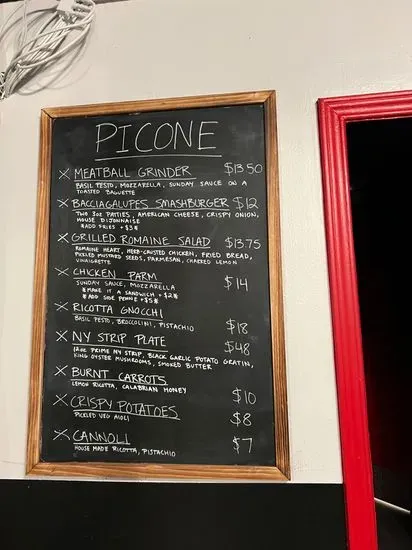 PICONE
X MEATBALL GRINDER $13.50
BASIL PESTO, MOZZARELLA, SUNDAY SAUCE ON A
TOASTED BAGUETTE
X BACCIAGALUPES SMASHBURGER $12
TWO 3OZ PATTIES, AMERICAN CHEESE, CRISPY ONION,
HOUSE DIJONNAISE
*ADD FRIES +$3*
X GRILLED ROMAINE SALAD $13.75
ROMAINE HEART, HERB-CRUSTED CHICKEN, FRIED BREAD,
PICKLED MUSTARD SEEDS, PARMESAN, CHARRED LEMON
VINAIGRETTE
X CHICKEN PARM $14
SUNDAY SAUCE, MOZZARELLA
*MAKE IT A SANDWICH +$2*
*ADD SIDE PENNE +$5*
X RICOTTA GNOCCHI $18
BASIL PESTO, BROCCOLINI, PISTACHIO
X NY STRIP PLATE $48
12OZ PRIME NY STRIP, BLACK GARLIC POTATO GRATIN,
KING OYSTER MUSHROOMS, SMOKED BUTTER
X BURNT CARROTS $10
LEMON RICOTTA, CALABRIAN HONEY
X CRISPY POTATOES $8
PICKLED VEG AIOLI
X CANNOLI $7
HOUSE MADE RICOTTA, PISTACHIO